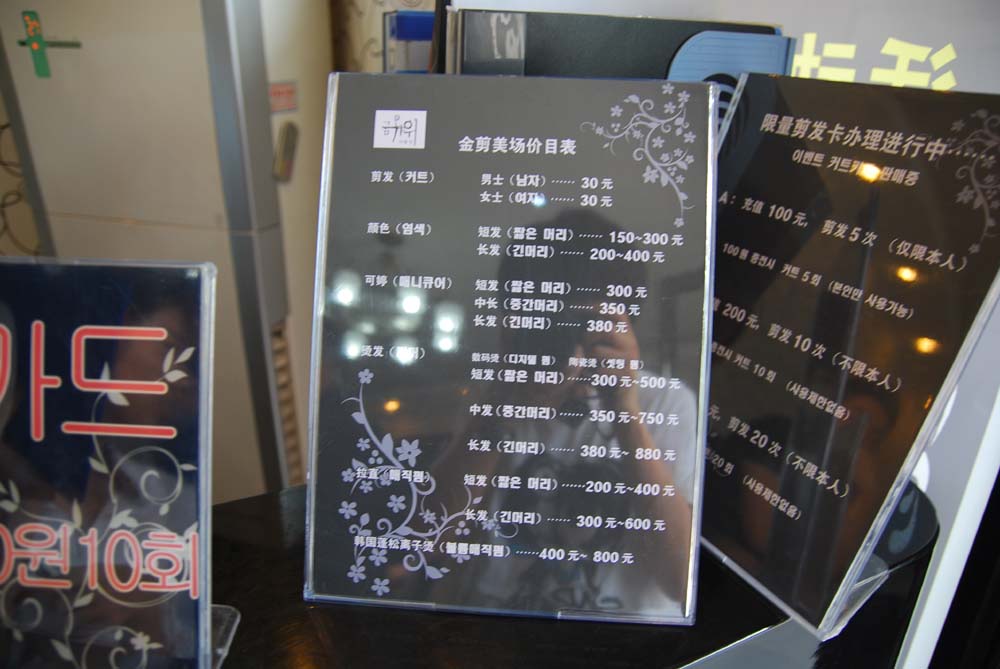 카드
원10회
가위
金剪美场价目表
剪发（커트） 男士（남자）…… 30 元
女士（여자）…… 30 元
颜色（염색） 短发（짧은 머리）…… 150~300 元
长发（긴머리）…… 200~400 元
可婷（매니큐어） 短发（짧은 머리）…… 300 元
中长（중간머리）…… 350 元
长发（긴머리）…… 380 元
烫发 数码烫（디지털 펌） 陶瓷烫（셋팅 펌）
短发（짧은 머리）……300 元~500 元
中发（중간머리）…… 350 元~750 元
长发（긴머리）…… 380 元~ 880 元
拉直（매직펌） 短发（짧은 머리）……200 元~400 元
长发（긴머리）…… 300 元~600 元
韩国蓬松离子烫（볼륨매직펌）……400 元~ 800 元
限量剪发卡办理进行中……
이벤트 커트카 판매중
A：充值 100 元，剪发 5 次 （仅限本人）
100 원 충전시 커트 5 회 （본인만 사용가능）
值 200 元，剪发 10 次（不限本人）
전시 커트 10 회 （사용제한없음）
元，剪发 20 次（不限本人）
20 회 （사용제한없음）